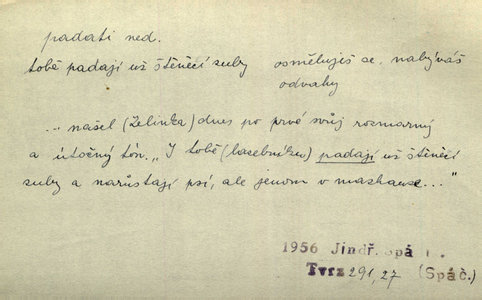 padati ned.
tobě padají už štěněčí zuby osměluješ se, nabýváš
odvahy
... našel (Želinka) dnes po prvé svůj rozmarný
a útočný tón. „I tobě (basebníkův) padají už štěněčí
zuby a narůstají psí, ale jenom v mazhause..."
1956 Jindř. Spá
Tvrz 291,27 (Spáč.)